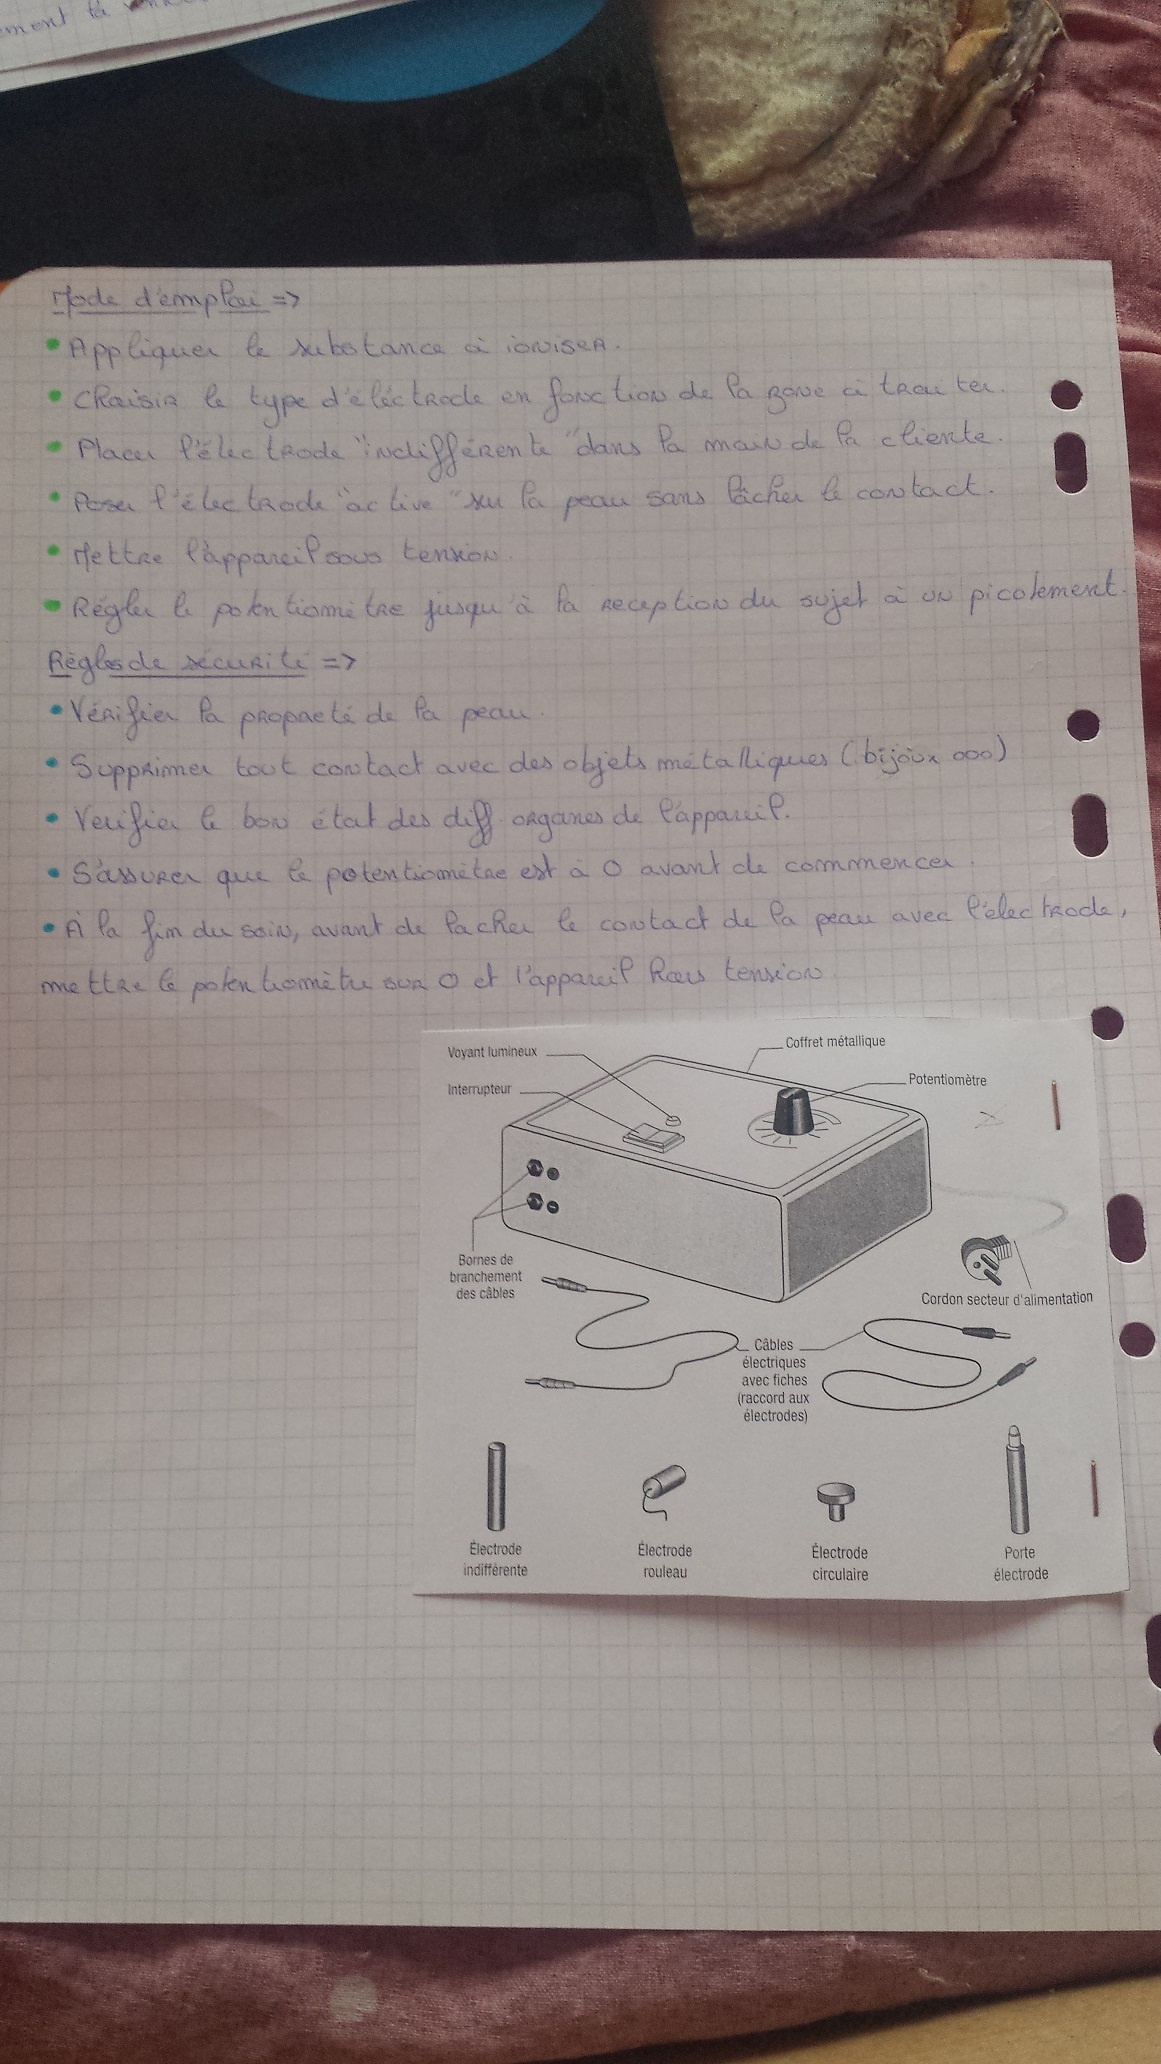 ement la
Mode d'emploi =>
• Appliquer le substance à ioniser.
• Choisir le type d'éléctrode en fonction de la zone à traiter.
• Placer l'électrode "indifférente" dans la main de la cliente.
• Poser l'électrode "active" sur la peau sans lâcher le contact.
• Mettre l'appareil sous tension.
• Régler le potentiomètre jusqu'à la reception du sujet à un picotement.
Règles de sécurité =>
• Vérifier la propreté de la peau.
• Supprimer tout contact avec des objets métalliques (bijoux ooo)
• Verifier le bon état des diff. organes de l'appareil.
• S'assurer que le potentiomètre est à 0 avant de commencer
• À la fin du soin, avant de lacher le contact de la peau avec l'électrode,
mettre le potentiomètre sur 0 et l'appareil hors tension.
Voyant lumineux
Coffret métallique
Interrupteur
Potentiomètre
Bornes de
branchement
des câbles
Cordon secteur d'alimentation
Câbles
électriques
avec fiches
(raccord aux
électrodes)
Électrode
indifférente
Électrode
rouleau
Électrode
circulaire
Porte
électrode